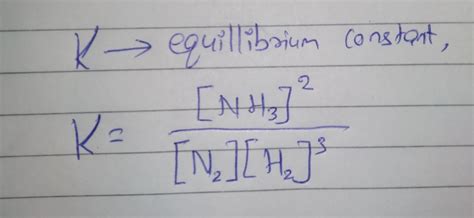 K → equillibrium constant,
K = [NH₃]² / [N₂][H₂]³